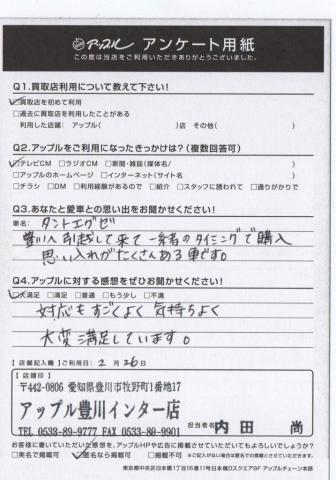 アップル アンケート用紙
この度は当店をご利用いただきありがとうございました。
Q1.買取店利用について教えて下さい!
☑買取店を初めて利用
□過去に買取店を利用したことがある
利用した店舗： アップル( )店 その他( )
Q2.アップルをご利用になったきっかけは？(複数回答可)
☑テレビCM □ラジオCM □新聞・雑誌(媒体名/ )
□アップルのホームページ □インターネット(サイト名 )
□チラシ □DM □利用経験があるので □紹介 □スタッフに誘われて □通りがかりで
Q3.あなたと愛車との思い出をお聞かせください!
車名： タントエグゼ
豊川へ引越して来て 一緒のタイミングで購入
思い入れがたくさんある車です。
Q4.アップルに対する感想をぜひお聞かせください!
☑大満足 □満足 □普通 □もう少し □不満
対応もすごくよく 気持ちよく
大変満足しています。
【 店舗記入欄 】ご利用日： 2 月 26 日
【 店舗印 】
〒442-0806 愛知県豊川市牧野町1番地17
アップル豊川インター店
TEL 0533-89-9777 FAX 0533-89-9901
担当者名 内田 尚
お客様に書いていただいた感想を、アップルHPや広告に掲載させていただいてもよろしいでしょうか？
□実名で掲載可 ☑匿名なら掲載可 □掲載不可 ※ご記入がない場合は匿名での掲載とさせていただきます。
東京都中央区日本橋1丁目16番11号日本橋Dスクエア9F アップルチェーン本部